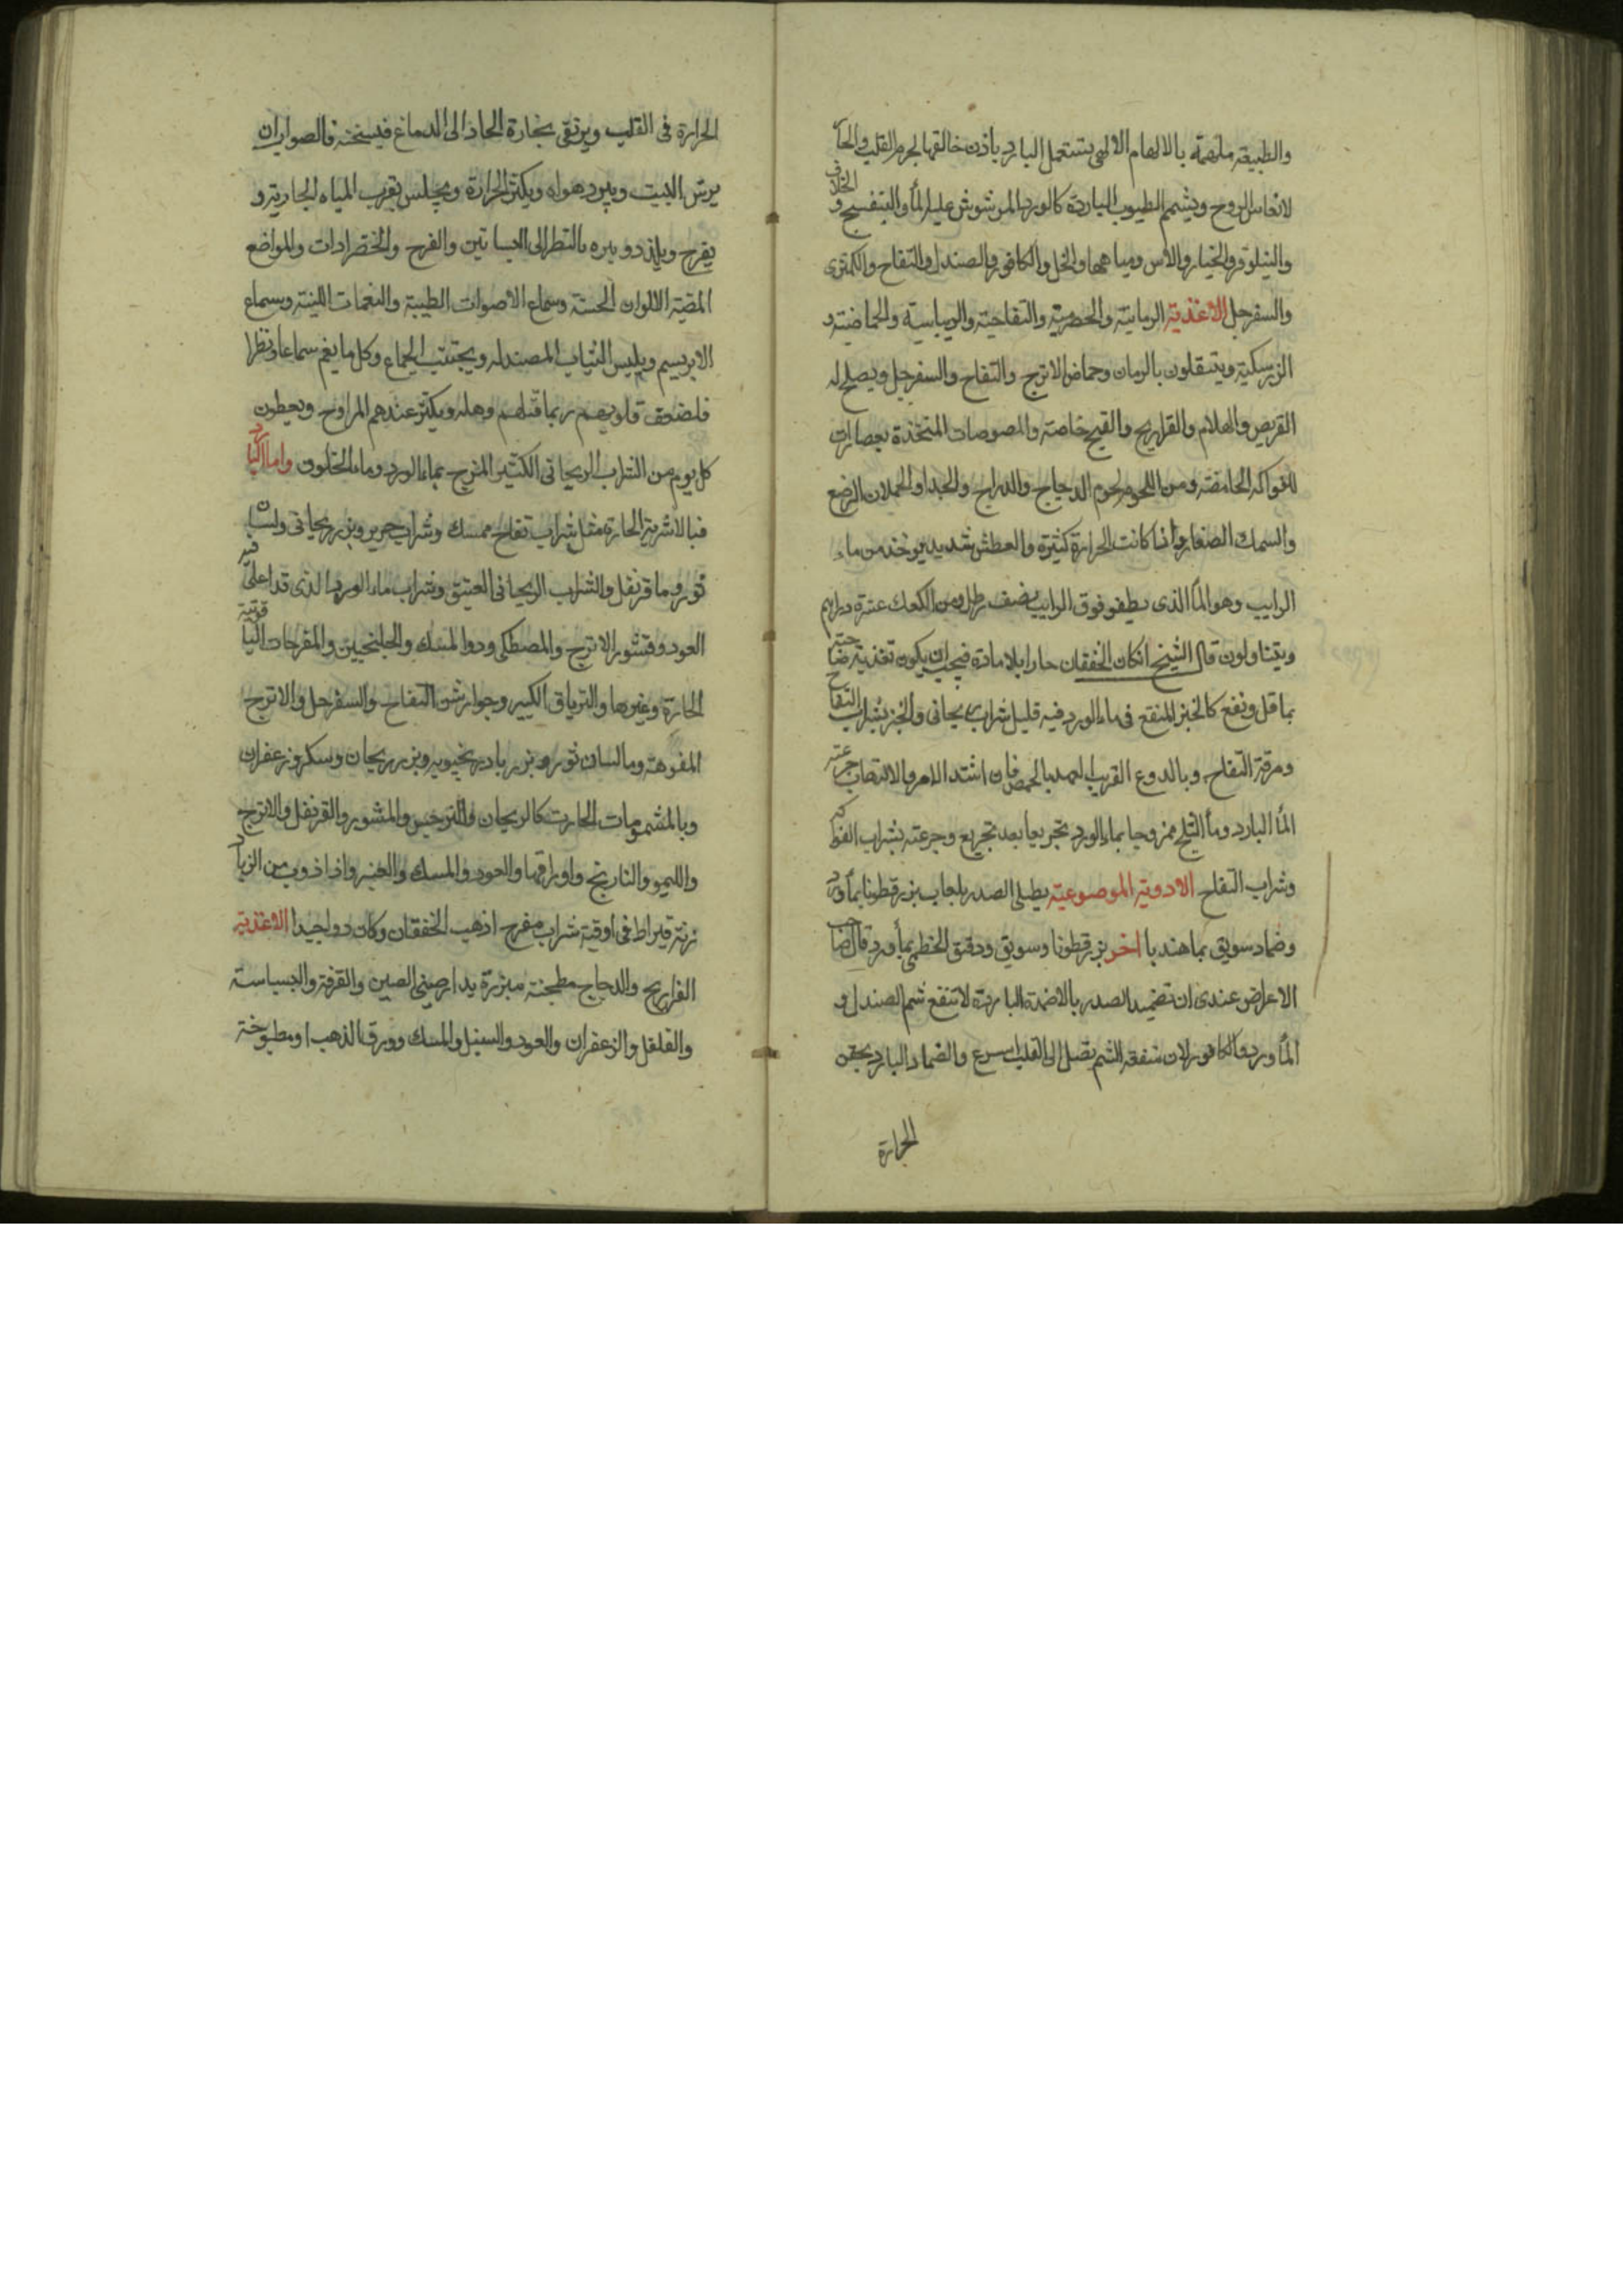 والطبيعة ملهمة بالالهام الالهى يستعمل البارد باذن خالقها لجرم القلب والحا
لانعاش الروح ويشمم الطيوب الباردة كالورد المرشوش عليه الماء والبنفسج و الخلاف
والنيلوفر والخيار والاس ومياهها والخل والكافور والصندل والتفاح والكمثرى
والسفرجل الاغذية الرمانية والحصرمية والتفاحية والريباسية والحماضية و
الزرسكية ويتنقلون بالرمان وحماض الاترج والتفاح والسفرجل ويصلح له
القريص والهلام والفراريج والقبج خاصة والمصوصات المتخذة بعصارات
الفواكه الحامضة ومن اللحوم لحوم الدجاج والدراج والجدا والحملان الرضع
والسمك الصغار واذا كانت الحرارة كثيرة والعطش شديد يوخذ من ماء
الرايب وهو الماء الذى يطفو فوق الرايب نصف رطل ومن الكعك عشرة دراهم
ويتناولون قال الشيخ ان كان الخفقان حارا بلا مادة فيجب ان يكون تغذية صاحبه
بما قل ونفع كالخبز المنقع فى ماء الورد فيه قليل شراب ريحانى والخبز بشراب التفاح
ومرقة التفاح وبالدوغ القريب العهد بالحمض فان اشتد الامر والالتهاب جرعته
الماء البارد وماء الثلج ممزوجا بماء الورد تجريعا بعد تجريع وجرعته بشراب الفواكه
وشراب التفاح الادوية الموضوعية يطلى الصدر بلعاب بزرقطونا بماء ورد
وضماد سويق بما هندبا اخر بزرقطونا وسويق ودقيق الخطمى بماء ورد قال صاحب
الاعراض عندى ان تضميد الصدر بالاضمدة الباردة لا تنفع شم الصندل و
الماورد والكافور لان منفعة الشم تصل الى القلب اسرع والضماد البارد يحقن
الحرارة
الحرارة فى القلب ويرتقى بخارة الحاد الى الدماغ فيسخنه فالصواب ان
يرش البيت ويبرد هواه ويكثر الحرارة ويجلس بقرب المياه الجارية و
يفرح ويلذذ وبره بالنظر الى البساتين والفرح والخضرادات والمواضع
المضية الالوان الحسنة وسماع الاصوات الطيبة والنغمات اللينة وبسماع
الابريسم ويلبس الثياب المصندله ويجتنب الجماع وكل ما يغم سماعا ونظرا
فلضعف قلوبهم ربما قتلهم وهله ويكثر عندهم المراوح ويعطون
كل يوم من الشراب الريحانى الكثير المزج بماء الورد وماء الخلاف واما البارد
فبالاشربة الحارة مثل شراب تفاح ممسك وشراب حرير وبزر ريحانى ولسان
ثور وما قرنفل والشراب الريحانى العتيق وشراب ماء الورد الذى قد اغلى فيه
العود وقشور الاترج والمصطكى ودوا المسك والجلنجبين والمفرحات الياقوتية
الحارة وغيرها والترياق الكبير وجوارشن التفاح والسفرجل والاترج
المفوهة وما لسان ثور وبزر بادرنجبويه وبزر ريحان وسكر وزعفران
وبالمشمومات الحارت كالريحان والنرجس والمنثور والقرنفل والاترج
والليمو والنارنج واوراقها والعود والمسك والعنبر واذا ذوب من الزباد
زنة قيراط فى اوقية شراب مفرح اذهب الخفقان وكان دوا جيدا الاغذية
الفراريج والدجاج مطجنة مبزرة بدارصينى الصين والقرفة والبسباسة
والفلفل والزعفران والعود والسنبل والمسك وورق الذهب او مطبوخة